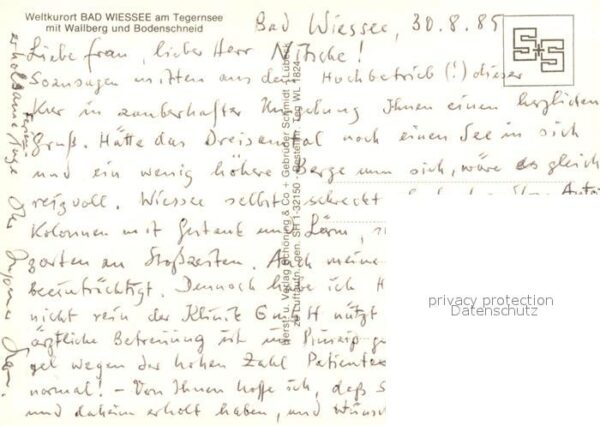 Weltkurort BAD WIESSEE am Tegernsee
mit Wallberg und Bodenschneid
Bad Wiessee, 30.8.85
S+S
Liebe Frau, lieber Herr Nitsche!
Sozusagen mitten aus dem Hochbetrieb (!) dieser
Kur in zauberhafter Umgebung Ihnen einen herzlichen
Gruß. Hätte das Dreisamtal noch einen See in sich
und ein wenig höhere Berge um sich, wäre es gleich
reizvoll. Wiessee selbst schreckt
Kolonnen mit Gestank und Lärm,
zonten an Stoßzeiten. Auch meine
beeinträchtigt. Dennoch habe ich
nicht rein der Klinik GmbH nützt
ärztliche Betreuung ist im Prinzip
gel wegen der hohen Zahl Patienten
normal! – Von Ihnen hoffe ich, daß
und daheim erholt haben, und
erholsame Tage Ihr
Ferien
Herst. u. Verlag Schöning & Co + Gebrüder Schmidt, Lübeck
Luftaufn. gen. SH 1-32150 - Bestellnr. Lag WL 1824
privacy protection
Datenschutz